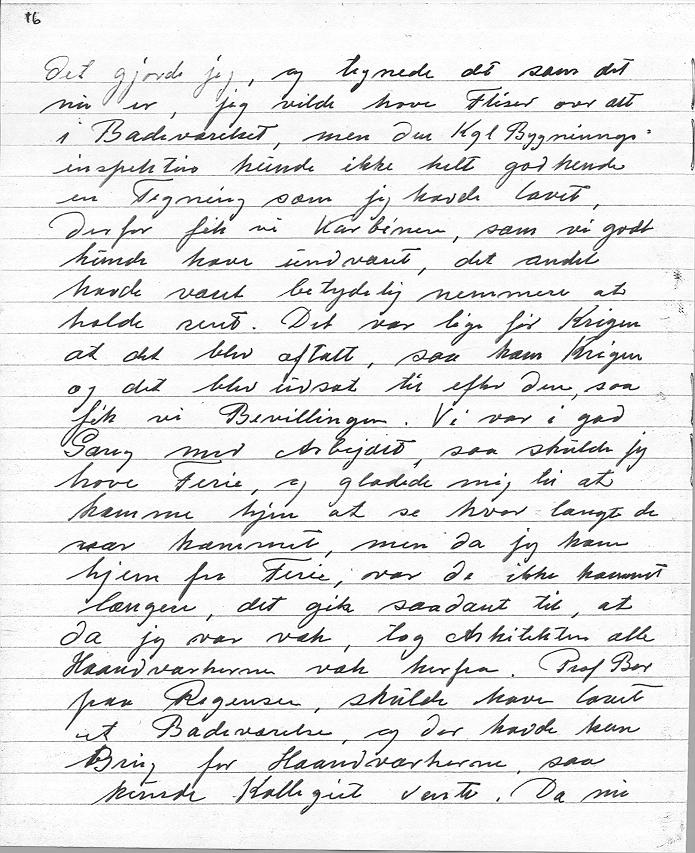 16
Det gjorde jeg, og tegnede det som det
nu er, jeg vilde have Fliser over alt
i Badeværelset, men den Kgl Bygnings-
inspektør kunde ikke helt godkende
en Tegning som jeg havde lavet,
derfor fik vi Karbinere, som vi godt
kunde have undværet, det andet
havde været betydelig nemmere at
holde rent. Det var lige før Krigen
at det blev aftalt, saa kom Krigen
og det blev udsat til efter den, saa
fik vi Bevillingen. Vi var i god
Gang med Arbejdet, saa skulde jeg
have Ferie, og glædede mig til at
komme hjem at se hvor langt de
var kommet, men da jeg kom
hjem fra Ferie, var de ikke kommet
længere, det gik saadant til, at
da jeg var væk, tog Arkitekten alle
Haandværkerne væk herfra. Prof Bor
paa Regensen, skulde have lavet
et Badeværelse, og der havde han
Brug for Haandværkerne, saa
kunde Kollegiet vente. Da nu